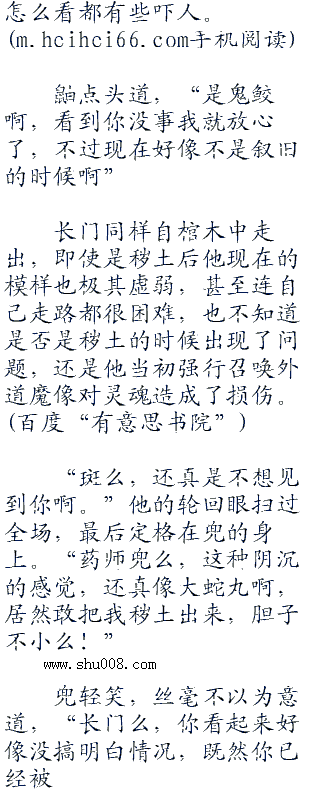 怎么看都有些吓人。
(m.hcihci66.com手机阅读)
鼬点头道，“是鬼鲛
啊，看到你没事我就放心
了，不过现在好像不是叙旧
的时候啊”
长门同样自棺木中走
出，即使是秽土后他现在的
模样也极其虚弱，甚至连自
己走路都很困难，也不知道
是否是秽土的时候出现了问
题，还是他当初强行召唤外
道魔像对灵魂造成了损伤。
(百度“有意思书院”)
“斑么，还真是不想见
到你啊。”他的轮回眼扫过
全场，最后定格在兜的身
上。“药师兜么，这种阴沉
的感觉，还真像大蛇丸啊，
居然敢把我秽土出来，胆子
不小么！”
www.shu008.com
兜轻笑，丝毫不以为意
道，“长门么，你看起来好
像没搞明白情况，既然你已
经被